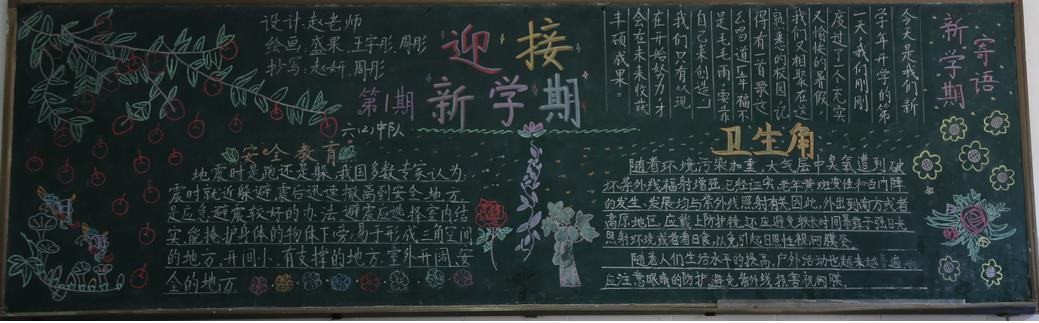 设计:赵老师
绘画:盛果、王宇彤、周彤
抄写:赵妍、周彤
迎接
第1期 新学期
六(2)中队
新学期
寄语
今天是我们新
学年开学的第
一天,我们刚刚
度过了一个充实
又愉快的暑假,
我们又相聚在这
熟悉的校园。记
得有一首歌这
么唱道:"幸福不
是毛毛雨,要靠
自己来创造。"
我们只有从现
在开始努力,才
会在未来收获
丰硕成果。
安全教育
地震时是跑还是躲,我国多数专家认为:
震时就近躲避,震后迅速撤离到安全地方,
是应急避震较好的办法。避震应选择室内结
实、能掩护身体的物体下旁,易于形成三角空间
的地方,开间小、有支撑的地方,室外开阔、安
全的地方。
卫生角
随着环境污染加重,大气层中臭氧遭到破
坏,紫外线辐射增强,已经证实,老年黄斑变性和白内障
的发生、发展均与紫外线照射有关。因此,外出到南方或者
高原地区,应戴上防护镜,还应避免较长时间暴露于强日光
照射环境或者看日食,以免引起日照性视网膜炎。
随着人们生活水平的提高,户外活动也越来越
应注意眼睛的防护,避免紫外线损害视网膜。